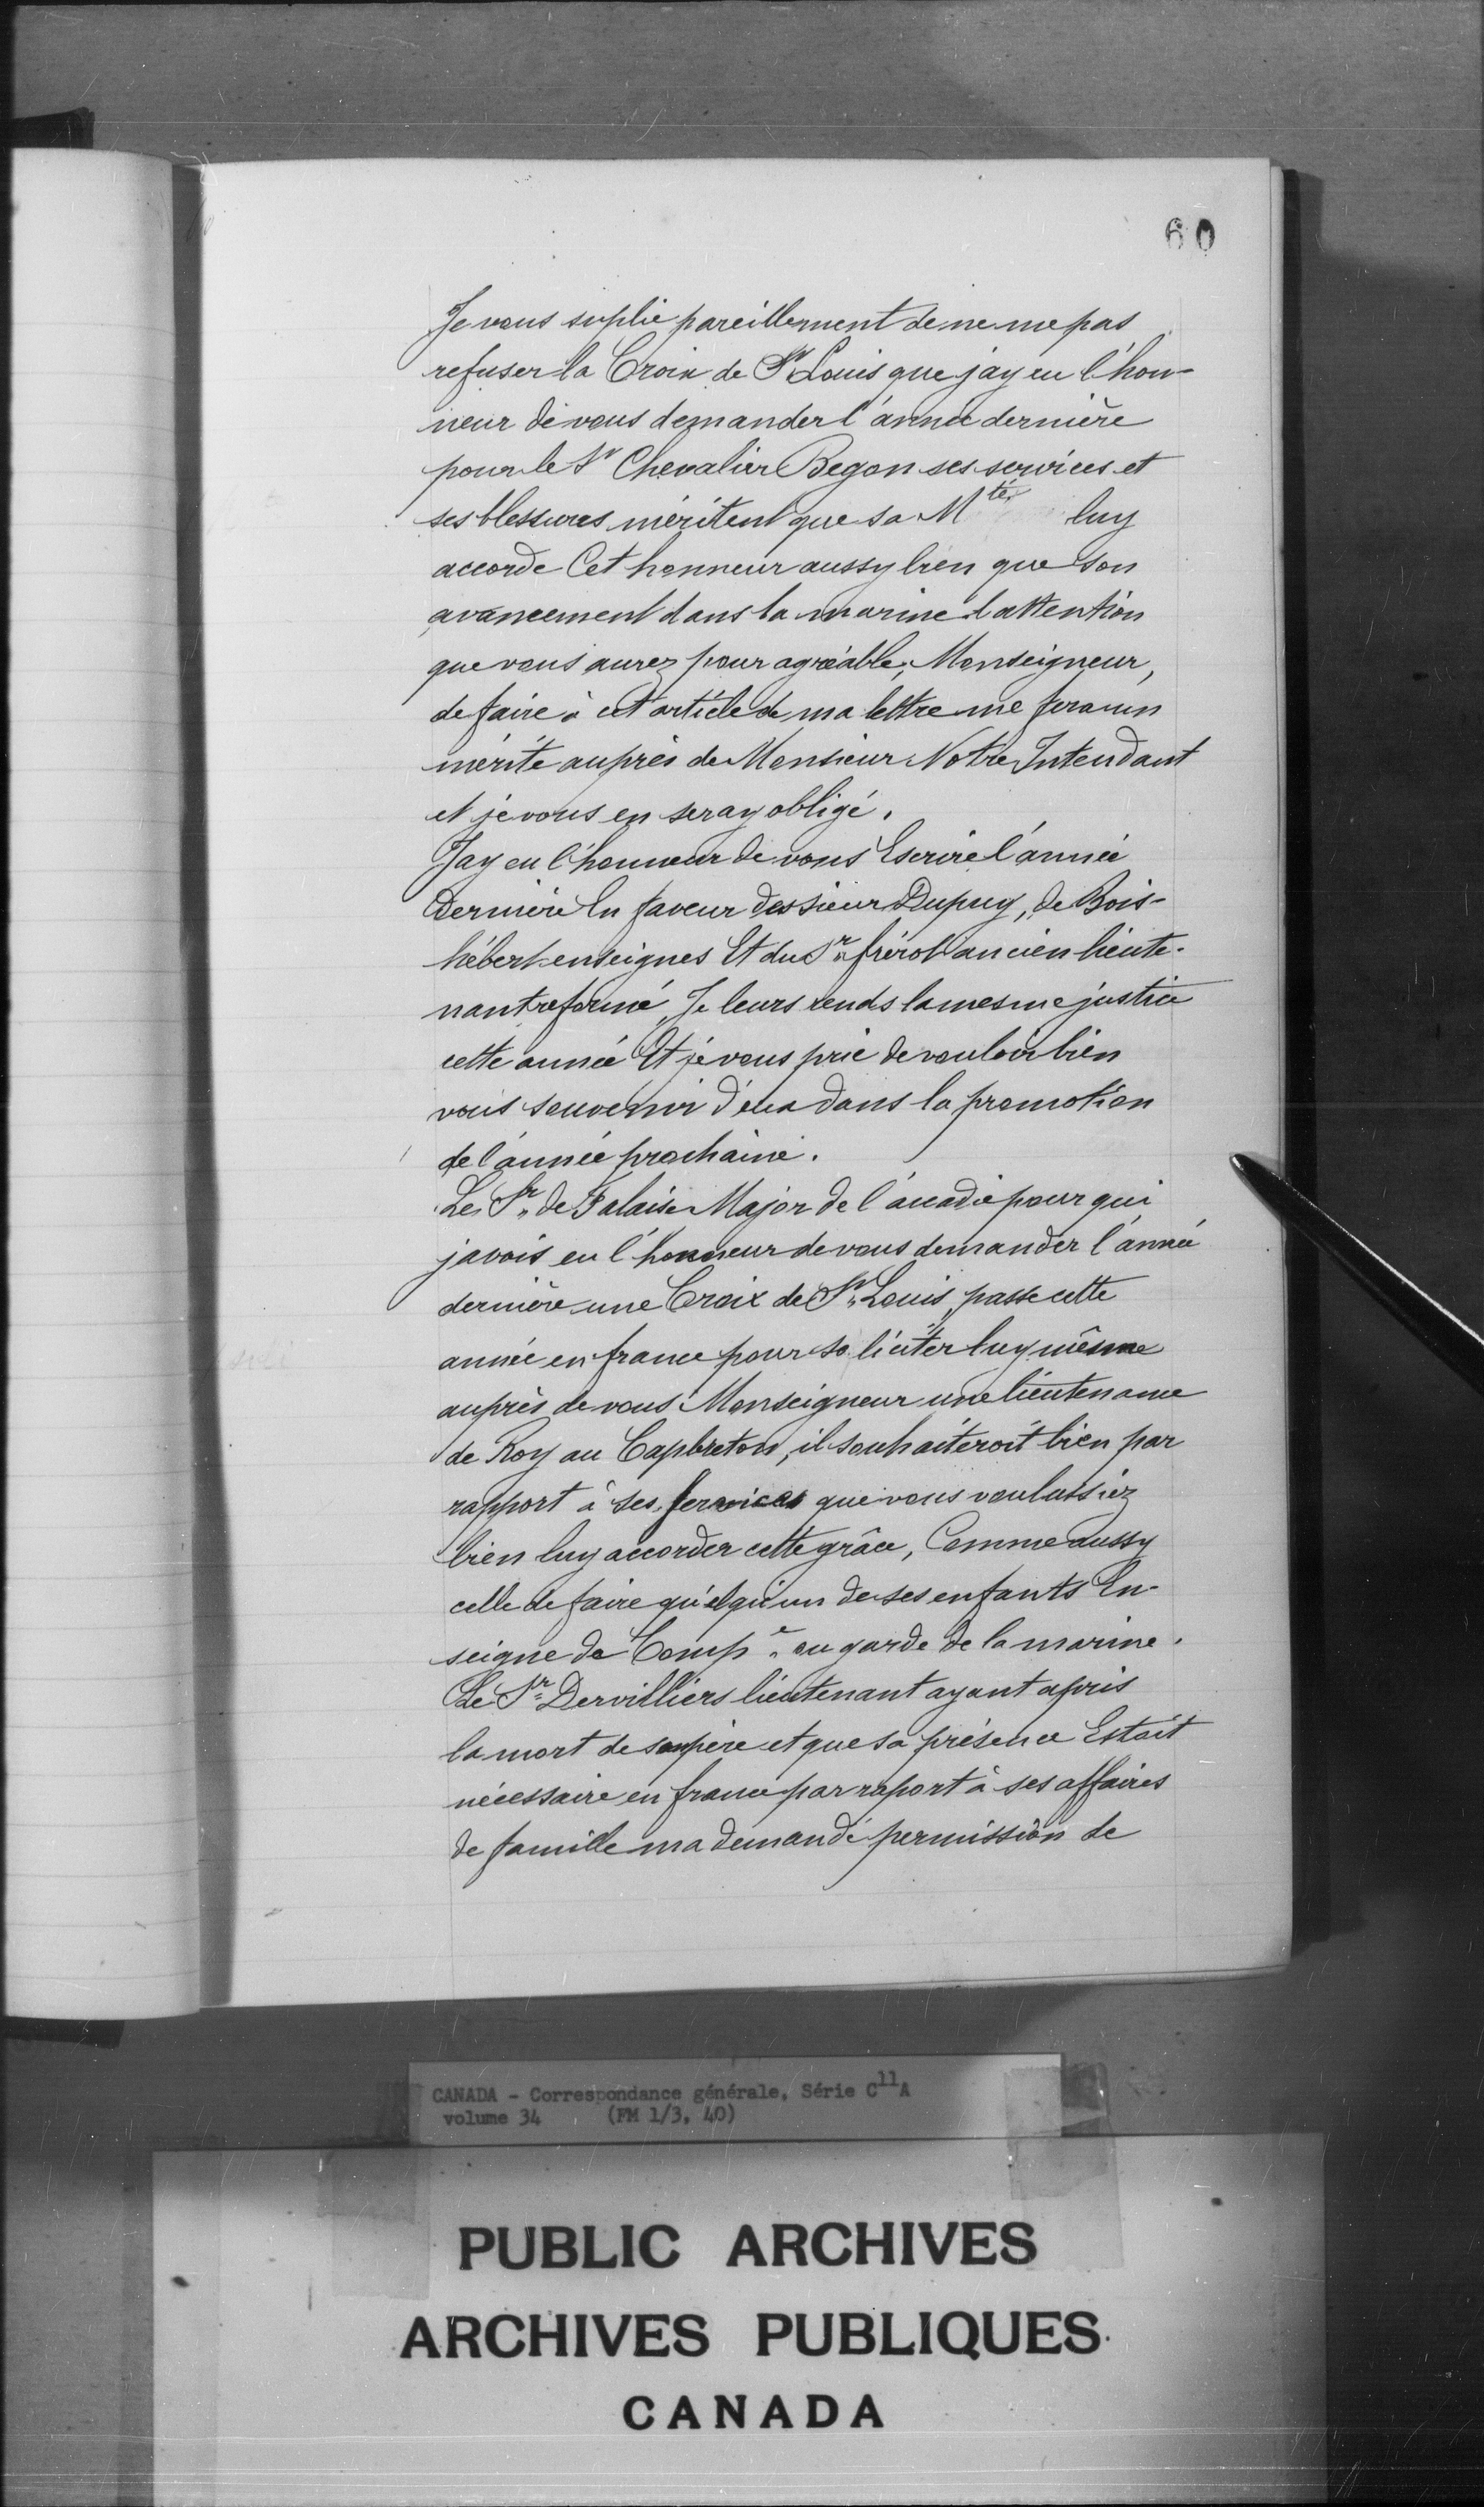 60
Je vous suplie pareillement de ne me pas
refuser la Croix de St Louis que jay eu l'hon-
neur de vous demander l'année dernière
pour le Sr Chevalier Begon ses services et
ses blessures méritent que sa Mté luy
accorde Cet honneur aussy bien que son
avancement dans la marine l'attention
que vous aurez pour agréable, Monseigneur,
de faire à cet article de ma lettre me fera un
mérite auprès de Monsieur Notre Intendant
et je vous en seray obligé.
Jay eu l'honneur de vous Escrire l'année
Dernière En faveur des sieur Dupuy, de Bois-
hébert enseignes Et du Sr frérot ancien lieute-
nant reformé, Je leurs rends la mesme justice
cette année Et je vous prie de vouloir bien
vous souvenir d'eux dans la promotion
de l'année prochaine.
Le Sr de Falaise Major de l'acadie pour qui
javois eu l'honneur de vous demander l'année
dernière une Croix de St Louis, passe cette
année en france pour soliciter luy même
auprès de vous Monseigneur une lieutenance
de Roy au Capbreton, il souhaiteroit bien par
rapport à ses services que vous voulussiez
bien luy accorder cette grâce, Comme aussy
celle de faire quelqu'un de ses enfants En-
seigne de Compe ou garde de la marine.
Le Sr Dervilliers lieutenant ayant apris
la mort de son père et que sa présence Estoit
nécessaire en france par raport à ses affaires
de famille ma demandé permission de
CANADA - Correspondance générale, Série C11A
volume 34 (FM 1/3, 40)
PUBLIC ARCHIVES
ARCHIVES PUBLIQUES
CANADA